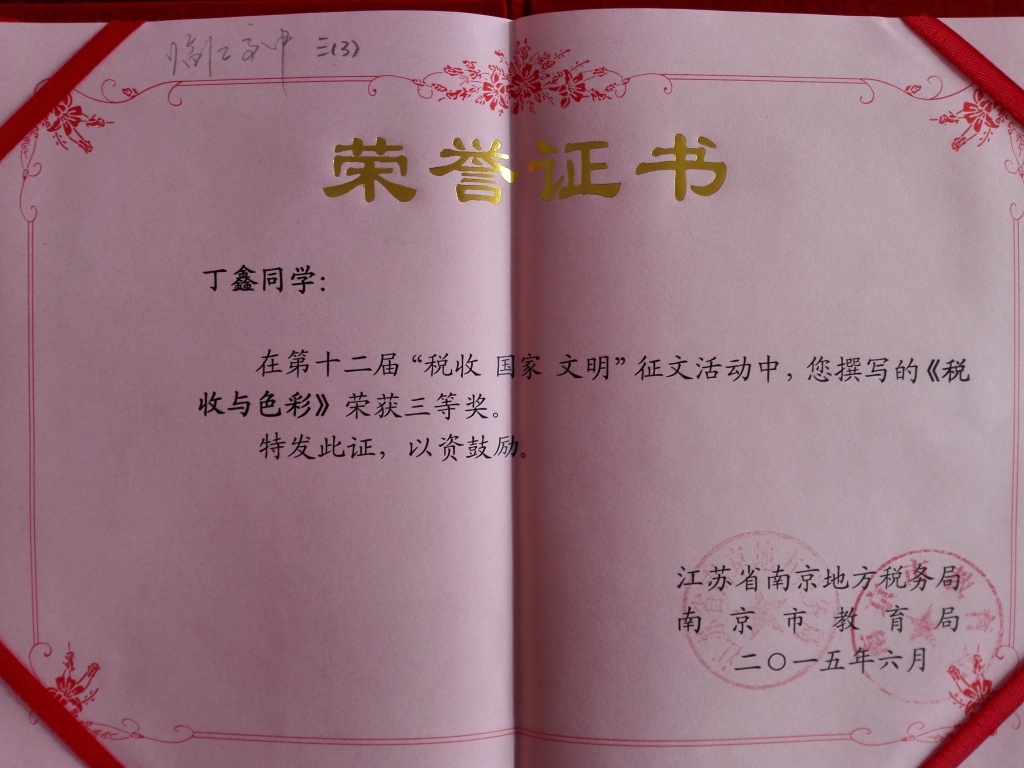 三(3)
荣誉证书
丁鑫同学：
在第十二届“税收 国家 文明”征文活动中，您撰写的《税
收与色彩》荣获三等奖。
特发此证，以资鼓励。
江苏省南京地方税务局
南京市教育局
二〇一五年六月